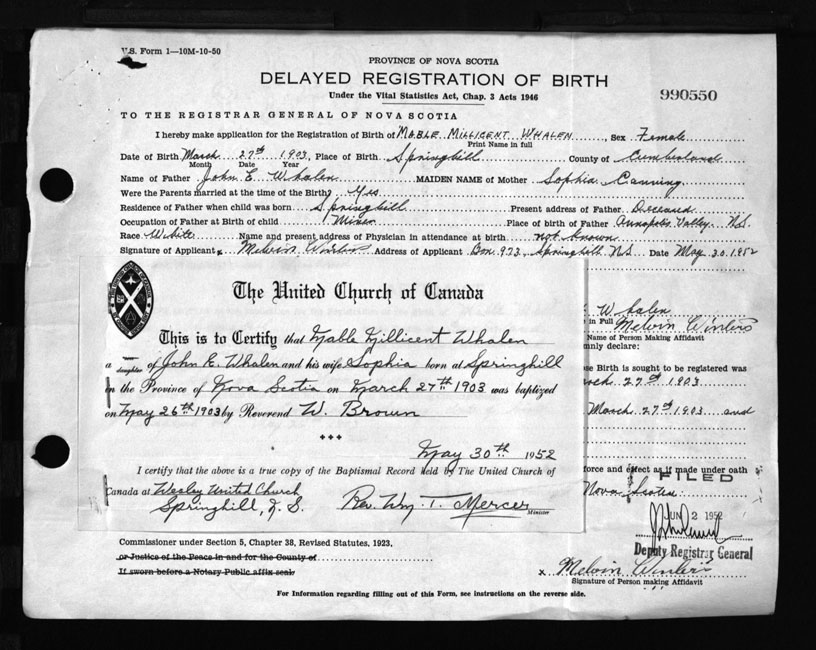 V.S. Form 1—10M-10-50
PROVINCE OF NOVA SCOTIA
DELAYED REGISTRATION OF BIRTH
Under the Vital Statistics Act, Chap. 3 Acts 1946
990550
TO THE REGISTRAR GENERAL OF NOVA SCOTIA
I hereby make application for the Registration of Birth of MABLE MILLICENT WHALEN, Sex Female
Print Name in full
Date of Birth March 27th 1903, Place of Birth Springhill County of Cumberland
Month Date Year
Name of Father John E. Whalen MAIDEN NAME of Mother Sophia Canning
Were the Parents married at the time of the Birth? Yes
Residence of Father when child was born Springhill Present address of Father Deceased
Occupation of Father at Birth of child Miner Place of Birth of Father Annapolis Valley. N.S.
Race White Name and present address of Physician in attendance at birth not known
Signature of Applicant x Melvin Address of Applicant Box 973, Springhill NS Date May 30. 1952
The United Church of Canada
Whalen
in Full Melvin
This is to Certify that Mable Millicent Whalen
Name of Person Making Affidavit
mnly declare:
a daughter of John E. Whalen and his wife Sophia born at Springhill
se Birth is sought to be registered was
in the Province of Nova Scotia on March 27th 1903 was baptized
rch 27th 1903
on May 26th 1903 by Reverend W. Brown
March 27th 1903 and
May 30th 1952
I certify that the above is a true copy of the Baptismal Record held by The United Church of
force and effect as if made under oath
Canada at Wesley United Church
FILED
Nova Scotia
Springhill, N.S. Rev. Wm. T. Mercer
Minister
JUN 2 1952
Deputy Registrar General
Commissioner under Section 5, Chapter 38, Revised Statutes, 1923,
or Justice of the Peace in and for the County of
If sworn before a Notary Public affix seal.
x Melvin
Signature of Person making Affidavit
For Information regarding filling out of this Form, see instructions on the reverse side.